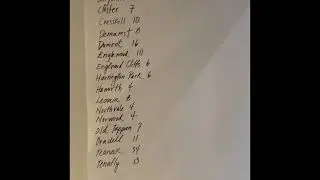 Closter 7
Cresskill 10
Demarest 8
Dumont 16
Englewood 10
Englewood Cliffs 6
Harrington Park 6
Haworth 4
Leonia 8
Northvale 4
Norwood 4
Old Tappan 7
Oradell 11
Teaneck 34
Tenafly 13